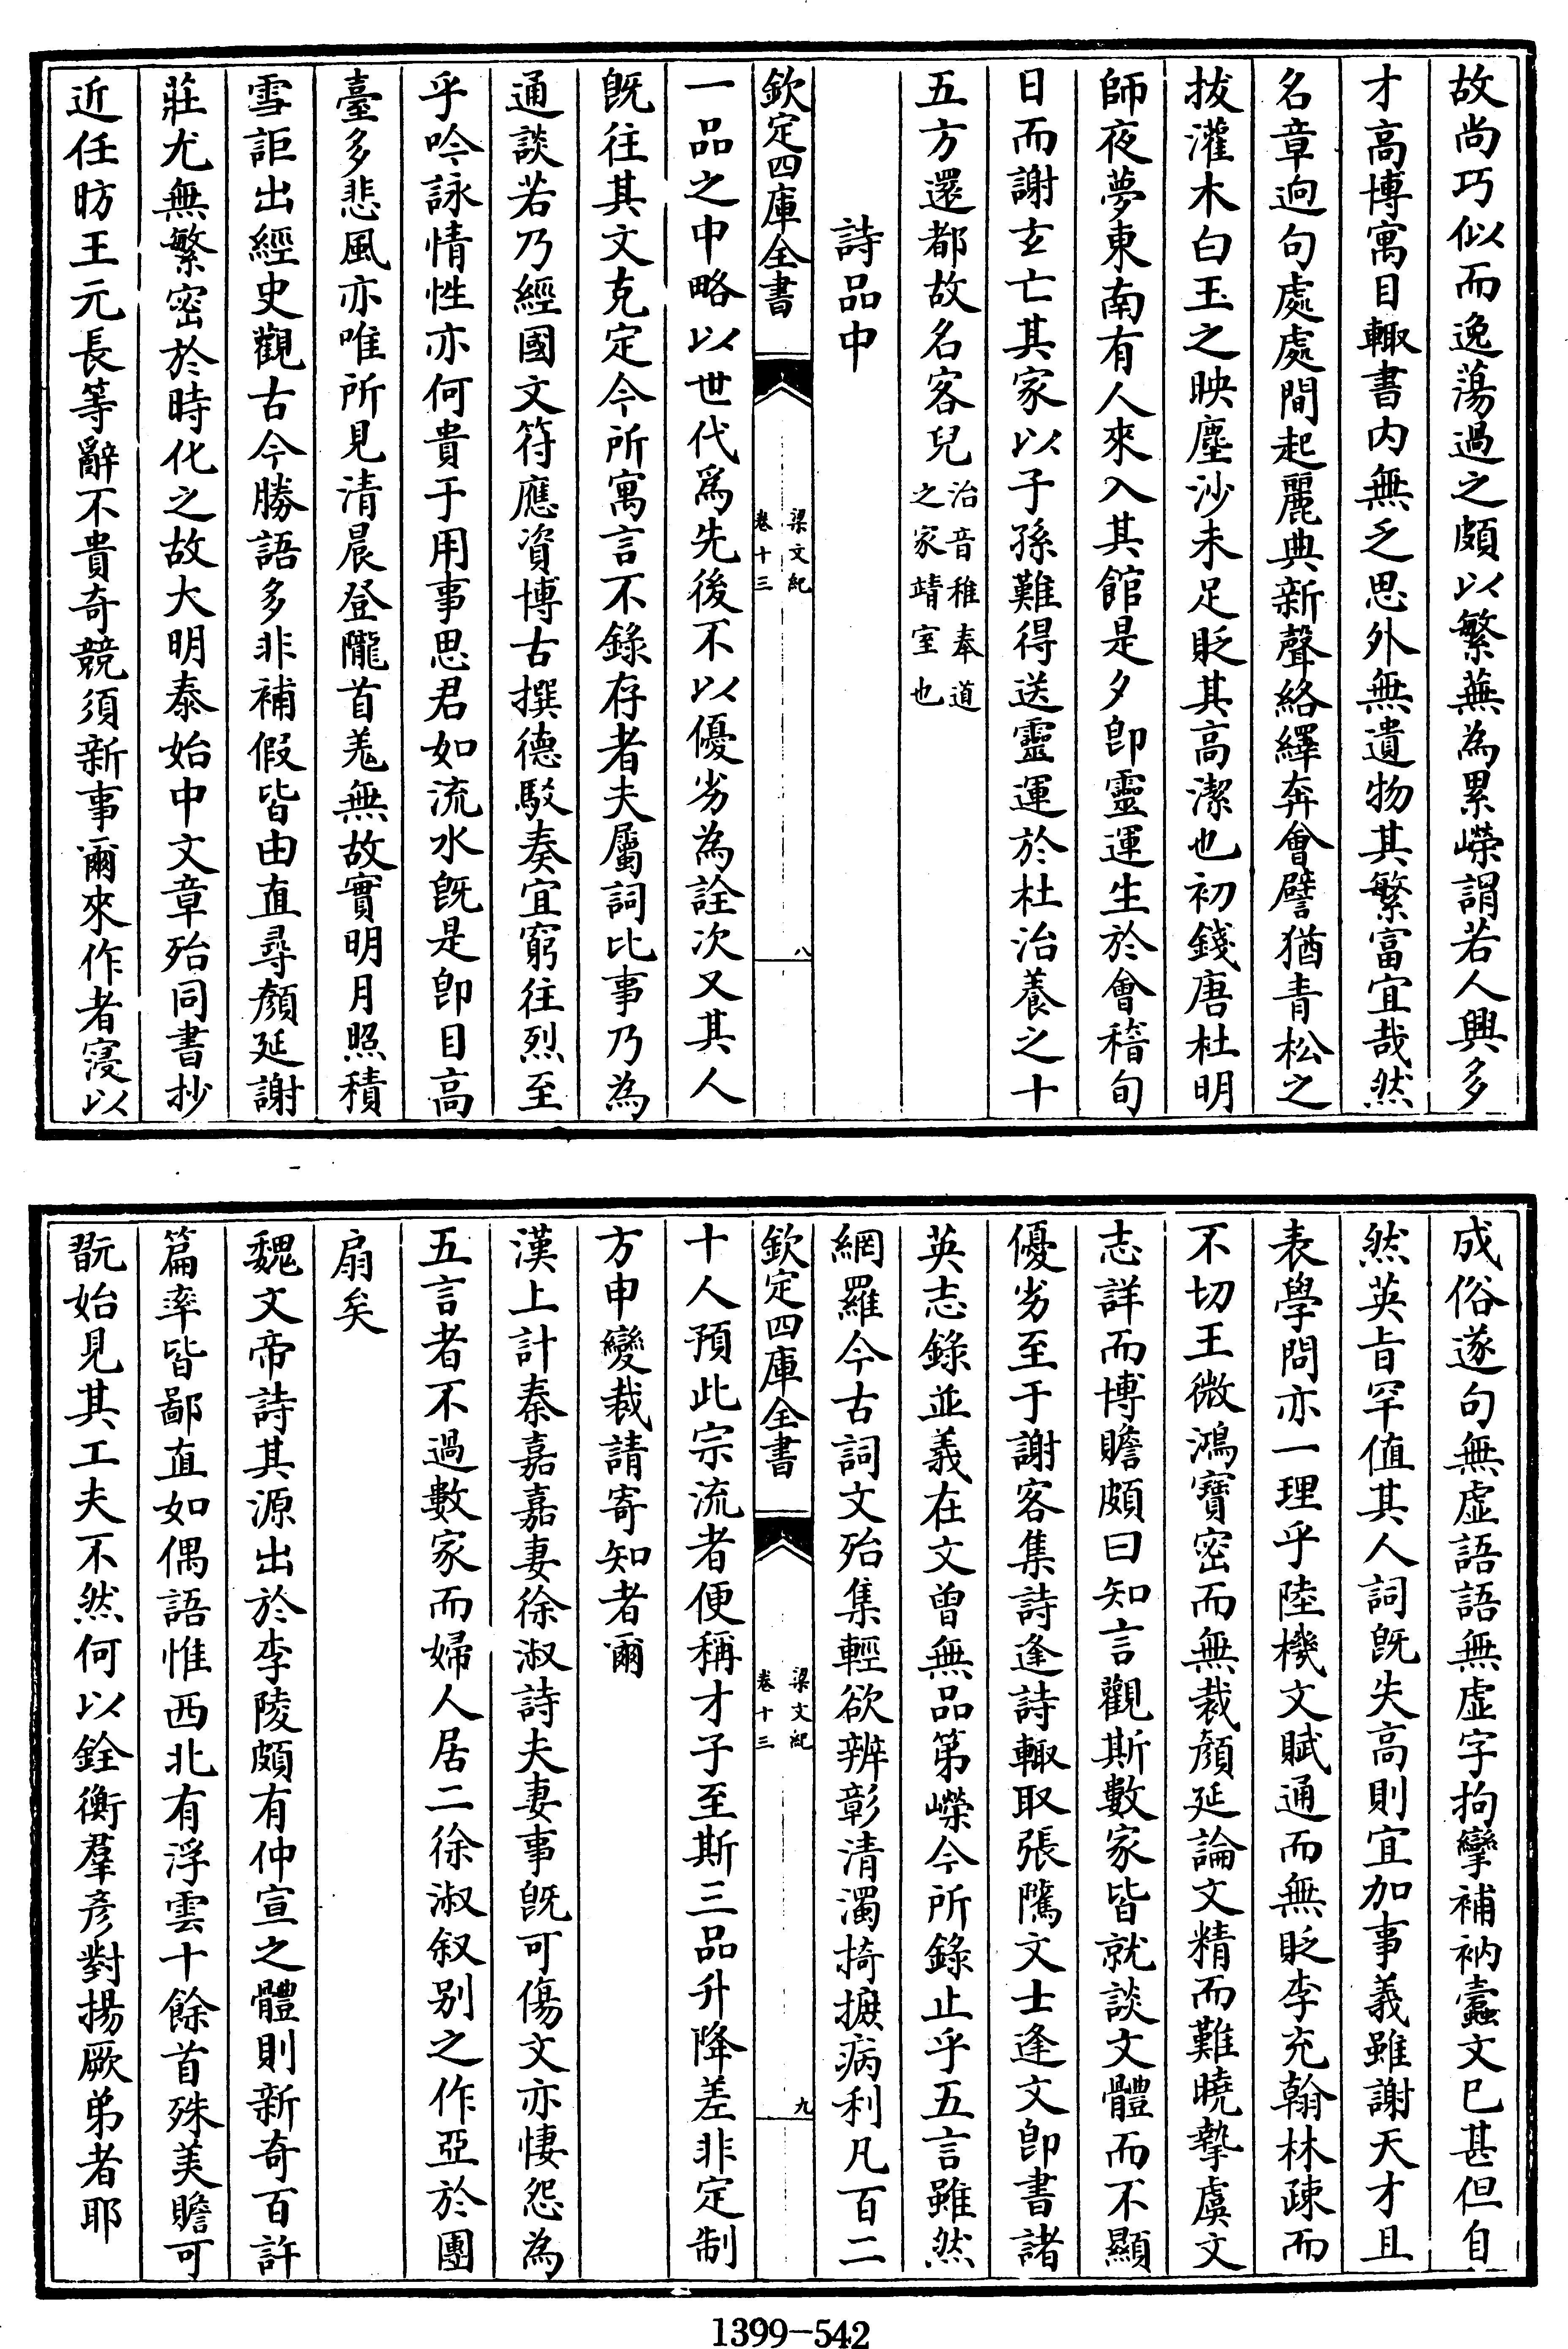 故尚巧似而逸蕩過之頗以繁蕪為累嶸謂若人興多
才高博寓目輙書内無乏思外無遺物其繁富宜哉然
名章逈句處處間起麗典新聲絡繹奔㑹譬猶青松之
拔灌木白玉之映塵沙未足貶其高潔也初錢唐杜明
師夜夢東南有人來入其館是夕卽靈運生於㑹稽旬
日而謝玄亡其家以子孫難得送靈運於杜治養之十
五方還都故名客兒治音稚奉道之家靖室也
詩品中
欽定四庫全書 梁文紀 卷十三 八
一品之中略以世代爲先後不以優劣為詮次又其人
旣往其文克定今所寓言不錄存者夫屬詞比事乃為
通談若乃經國文符應資博古撰德駁奏宜窮往烈至
乎吟詠情性亦何貴于用事思君如流水旣是卽目高
臺多悲風亦唯所見清晨登隴首羗無故實明月照積
雪詎出經史觀古今勝語多非補假皆由直尋顔延謝
莊尤無繁密於時化之故大明泰始中文章殆同書抄
近任昉王元長等辭不貴奇競須新事爾來作者寖以
成俗遂句無虛語語無虛字拘攣補衲蠹文已甚但自
然英旨罕值其人詞旣失高則宜加事義雖謝天才且
表學問亦一理乎陸機文賦通而無貶李充翰林疎而
不切王微鴻寶密而無裁顔延論文精而難曉摯虞文
志詳而博贍頗曰知言觀斯數家皆就談文體而不顯
優劣至于謝客集詩逢詩輙取張隲文士逢文卽書諸
英志錄並義在文曾無品第嶸今所錄止乎五言雖然
網羅今古詞文殆集輕欲辨彰清濁掎摭病利凡百二
欽定四庫全書 梁文紀 卷十三 九
十人預此宗流者便稱才子至斯三品升降差非定制
方申變裁請寄知者爾
漢上計秦嘉嘉妻徐淑詩夫妻事旣可傷文亦悽怨為
五言者不過數家而婦人居二徐淑叙别之作亞於團
扇矣
魏文帝詩其源出於李陵頗有仲宣之體則新奇百許
篇率皆鄙直如偶語惟西北有浮雲十餘首殊美贍可
翫始見其工夫不然何以銓衡羣彥對揚厥弟者耶
1399-542